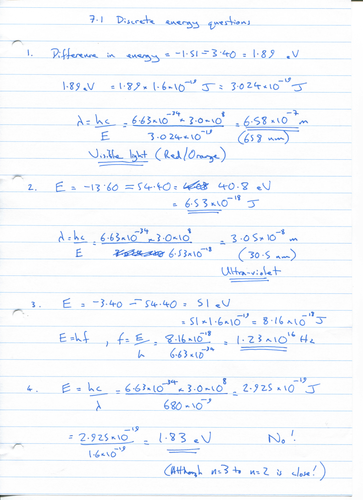 7.1 Discrete energy questions
1. Difference in energy = -1.51 - -3.40 = 1.89 eV
1.89 eV = 1.89 × 1.6×10⁻¹⁹ J = 3.024×10⁻¹⁹ J
λ = hc/E = 6.63×10⁻³⁴ × 3.0×10⁸ / 3.024×10⁻¹⁹ = 6.58×10⁻⁷ m
(658 nm)
Visible light (Red/Orange)
2. E = -13.60 - -54.40 = 40.8 eV
= 6.53×10⁻¹⁸ J
λ = hc/E = 6.63×10⁻³⁴ × 3.0×10⁸ / 6.53×10⁻¹⁸ = 3.05×10⁻⁸ m
(30.5 nm)
Ultra-violet
3. E = -3.40 - -54.40 = 51 eV
= 51 × 1.6×10⁻¹⁹ = 8.16×10⁻¹⁸ J
E = hf , f = E/h = 8.16×10⁻¹⁸ / 6.63×10⁻³⁴ = 1.23×10¹⁶ Hz
4. E = hc/λ = 6.63×10⁻³⁴ × 3.0×10⁸ / 680×10⁻⁹ = 2.925×10⁻¹⁹ J
= 2.925×10⁻¹⁹ / 1.6×10⁻¹⁹ = 1.83 eV No!
(Although n=3 to n=2 is close!)